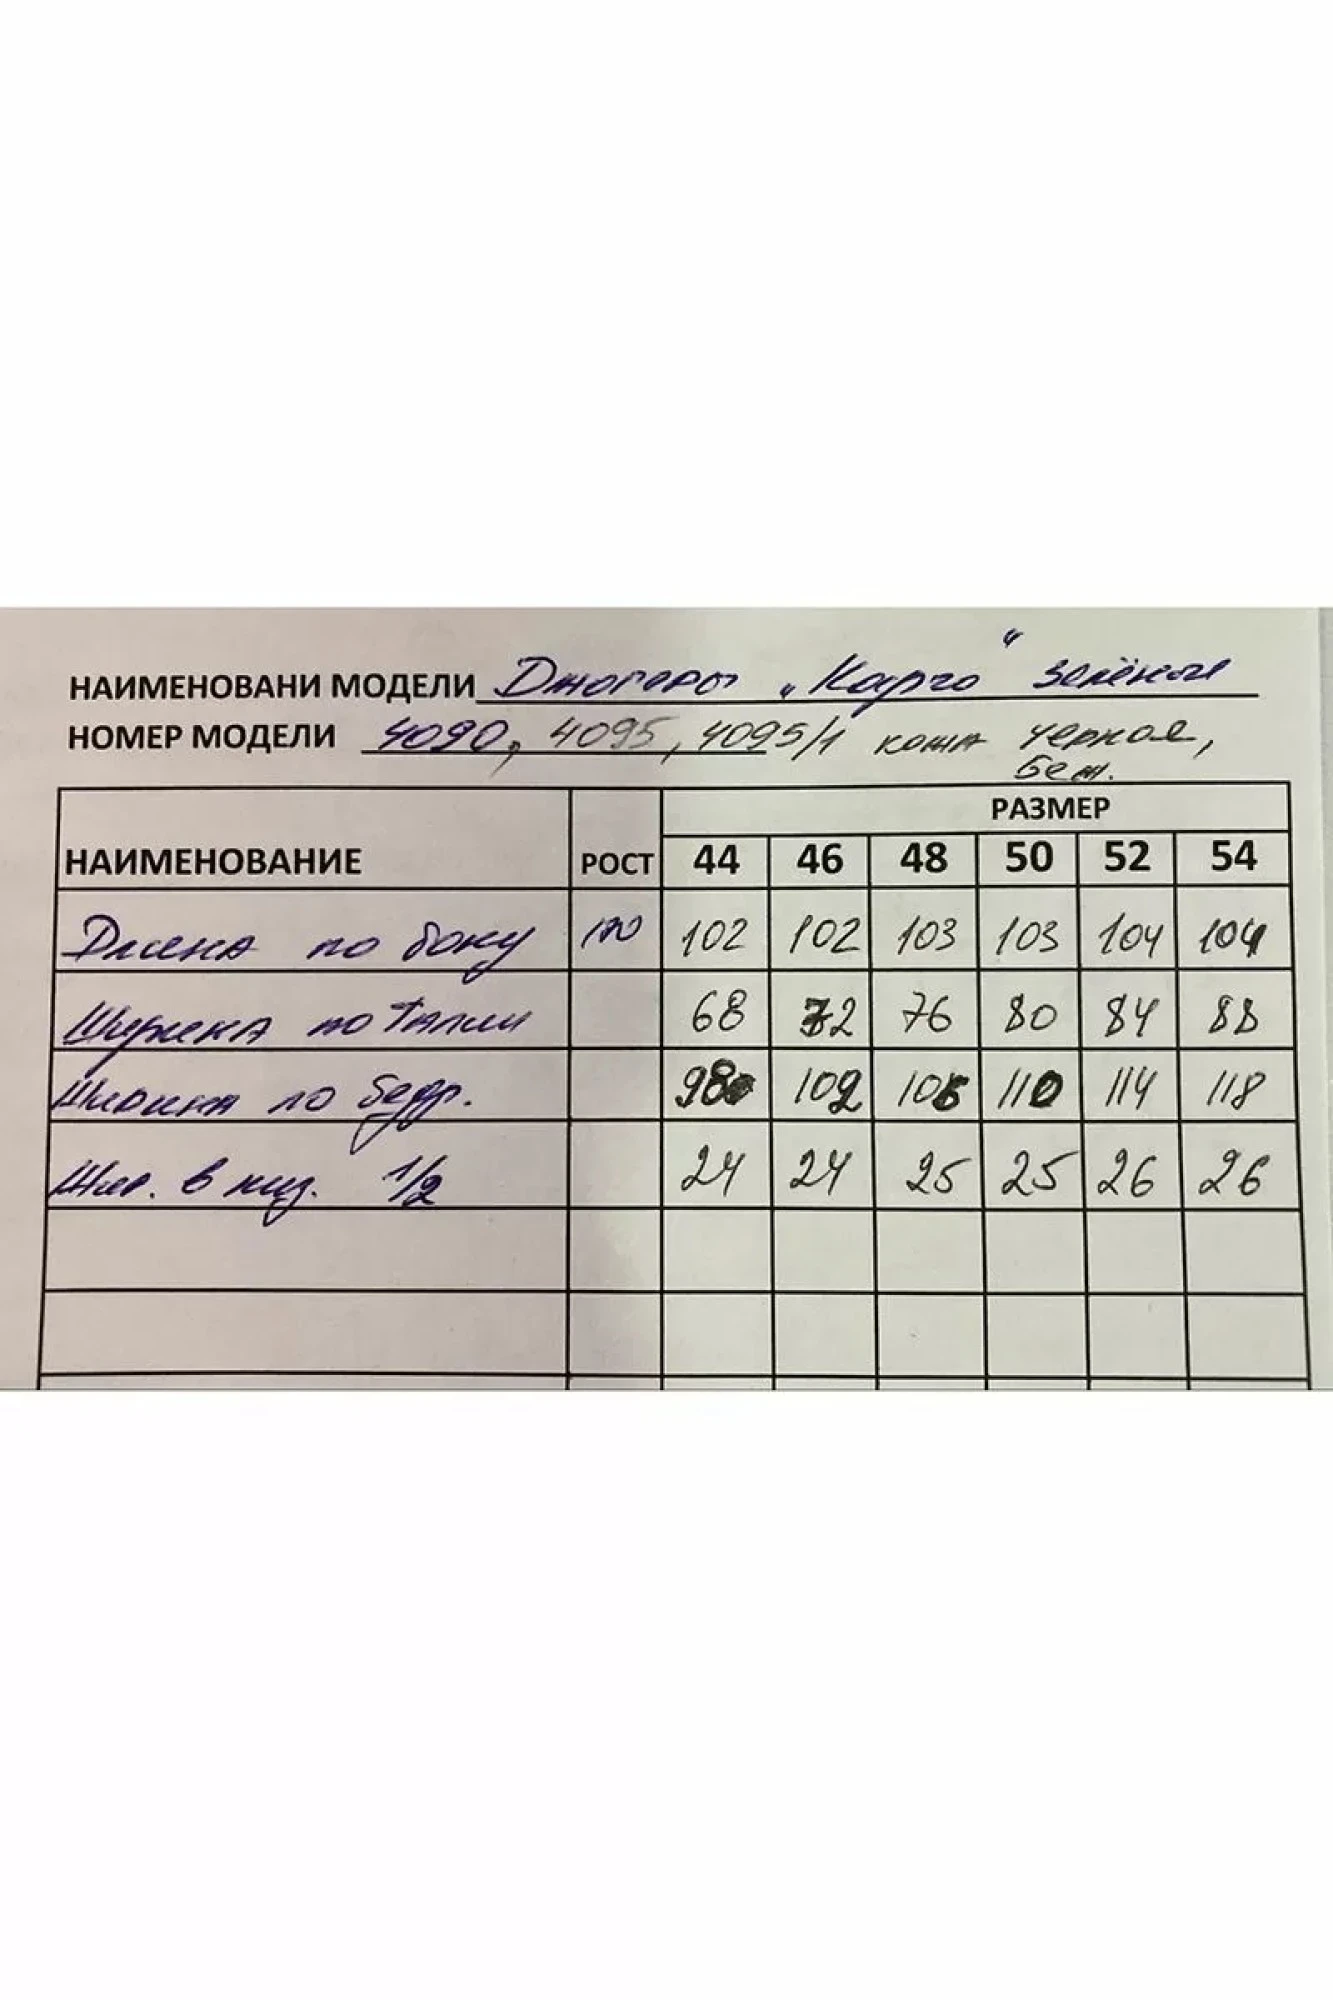 НАИМЕНОВАНИ МОДЕЛИ Джогеры „Карго“ зелёные
НОМЕР МОДЕЛИ 4090, 4095, 4095/1 кожа черная,
беж.
РАЗМЕР
НАИМЕНОВАНИЕ РОСТ 44 46 48 50 52 54
Длина по боку 170 102 102 103 103 104 104
Ширина по талии 68 72 76 80 84 88
Ширина по бедр. 98 102 106 110 114 118
Шир. в низ. 1/2 24 24 25 25 26 26